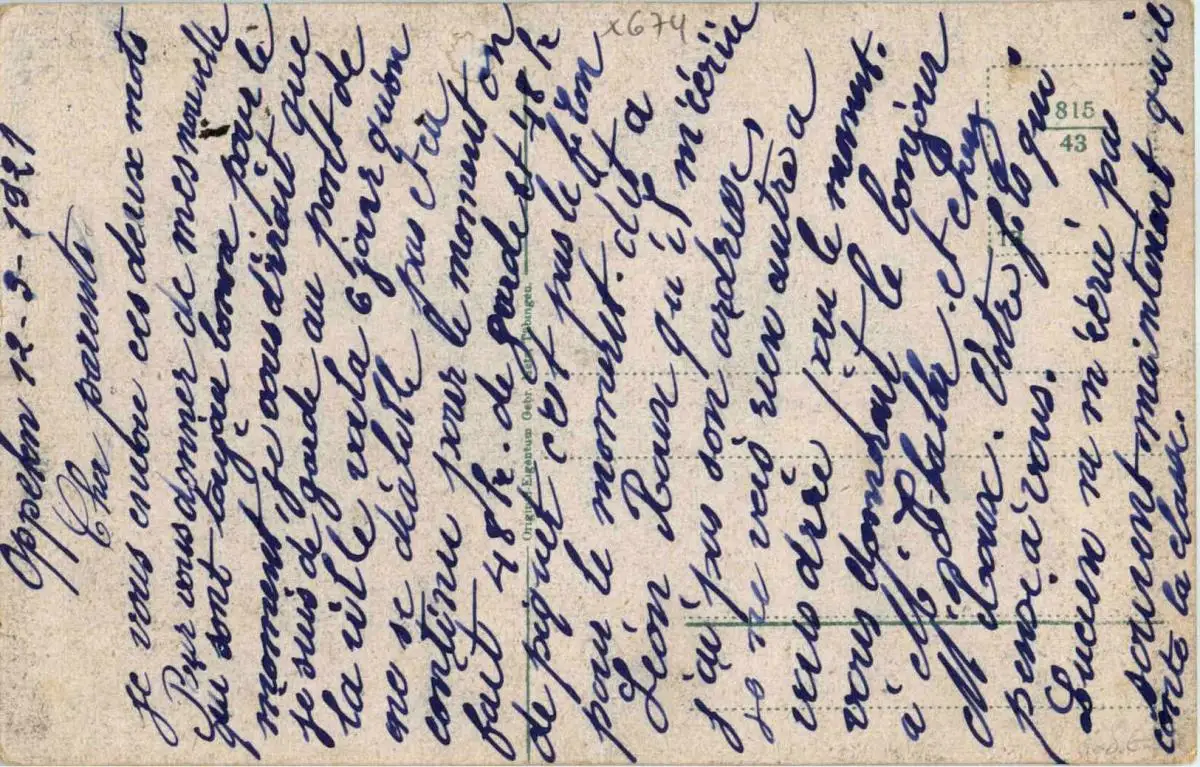 Oppeln 12-3-1921
Cher parents
Je vous envoie ces deux mots
Pour vous donner de mes nouvelle
qui sont toujour bonne pour le
moment je vous dirait que
je suis de garde au pont de
la ville voila 6 jour quon
ne se déshabille pas et ca
continu pour le moment on
fait 48 h. de garde et 48 h
de piquet c'est pas le filon
pour le moment. dit a
Léon Roux qu'i m'écrive
j'ai pas son adresse,
je ne vois rien autre a
vous dire sur le moment.
vous donnerait le bonjour
à et chez
Roux. Votre fils qui
pense à vous.
Lucien ne m'écrit pas
souvent maintenant qu'il
conte la classe.
x674
815
43
Original-Eigentum Gebr. Tübingen.